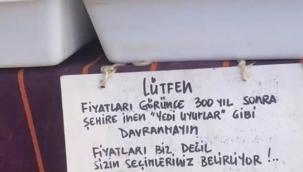 LÜTFEN
FİYATLARI GÖRÜNCE 300 YIL SONRA
ŞEHİRE İNEN "YEDİ UYURLAR" GİBİ
DAVRANMAYIN
FİYATLARI BİZ DEĞİL
SİZİN SEÇİMLERİNİZ BELİRLİYOR !..